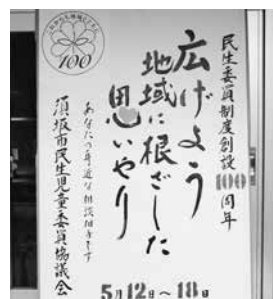 民生委員制度創設100周年
広げよう
地域に根ざした
思いやり
あなたの身近な相談相手です
須坂市民生児童委員協議会
100
5月12日~18日